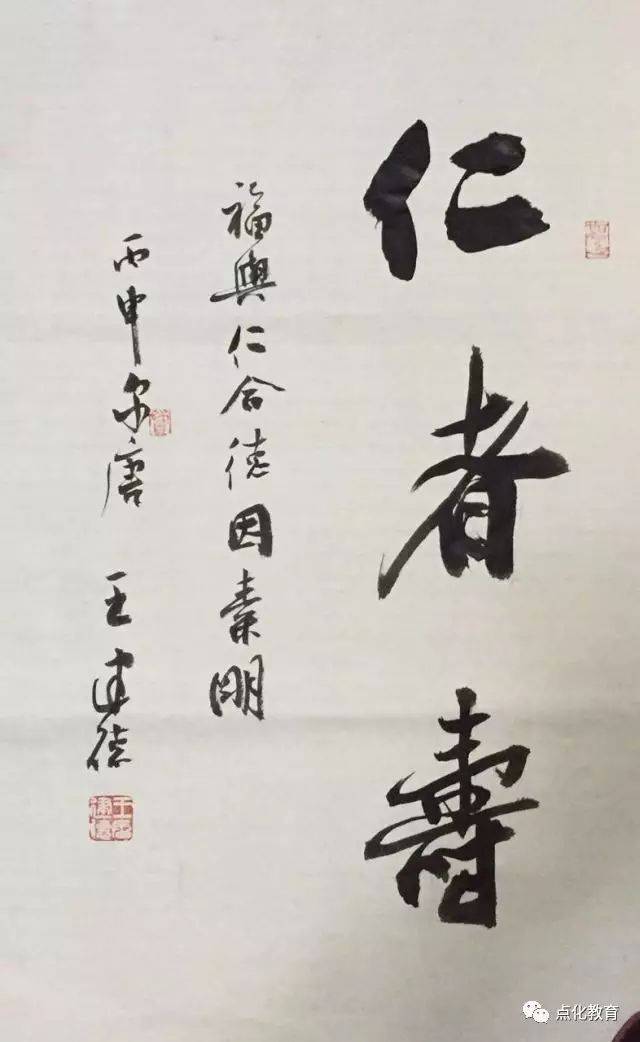 仁者壽
福與仁合德因素明
丙申 唐 王建德
点化教育